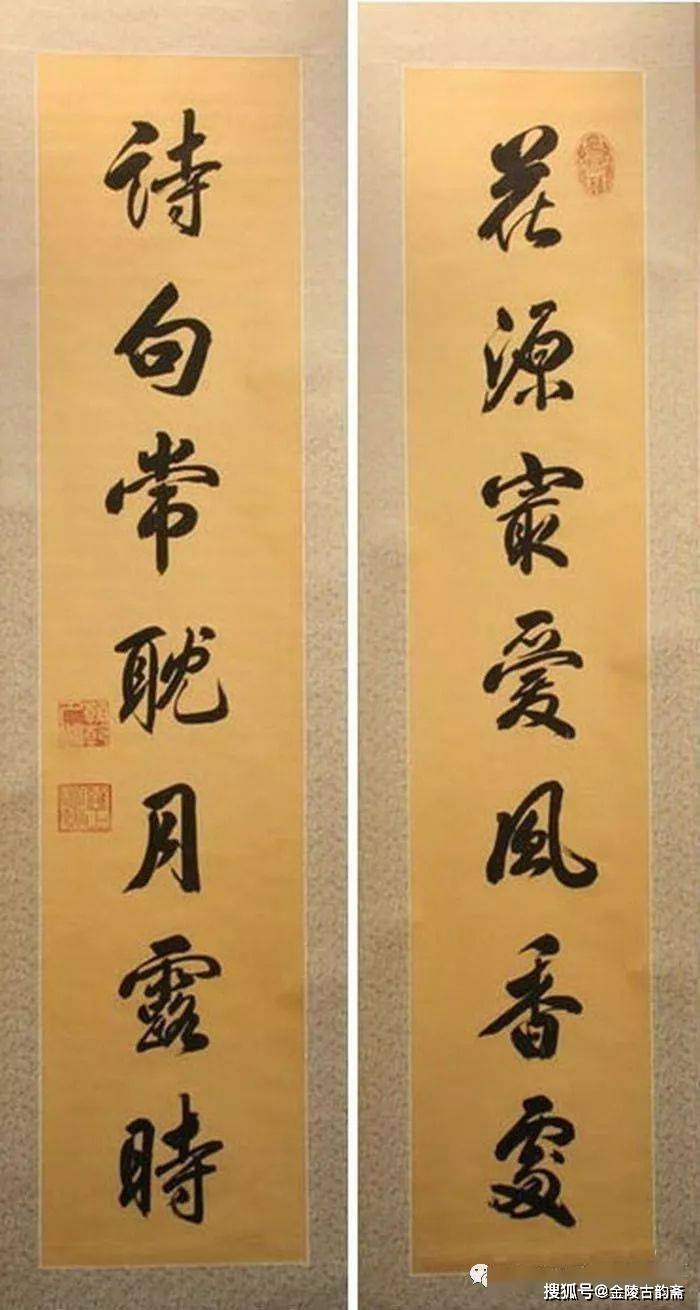 花源宸爱風香處
詩句常耽月露時
搜狐号@金陵古韵斋